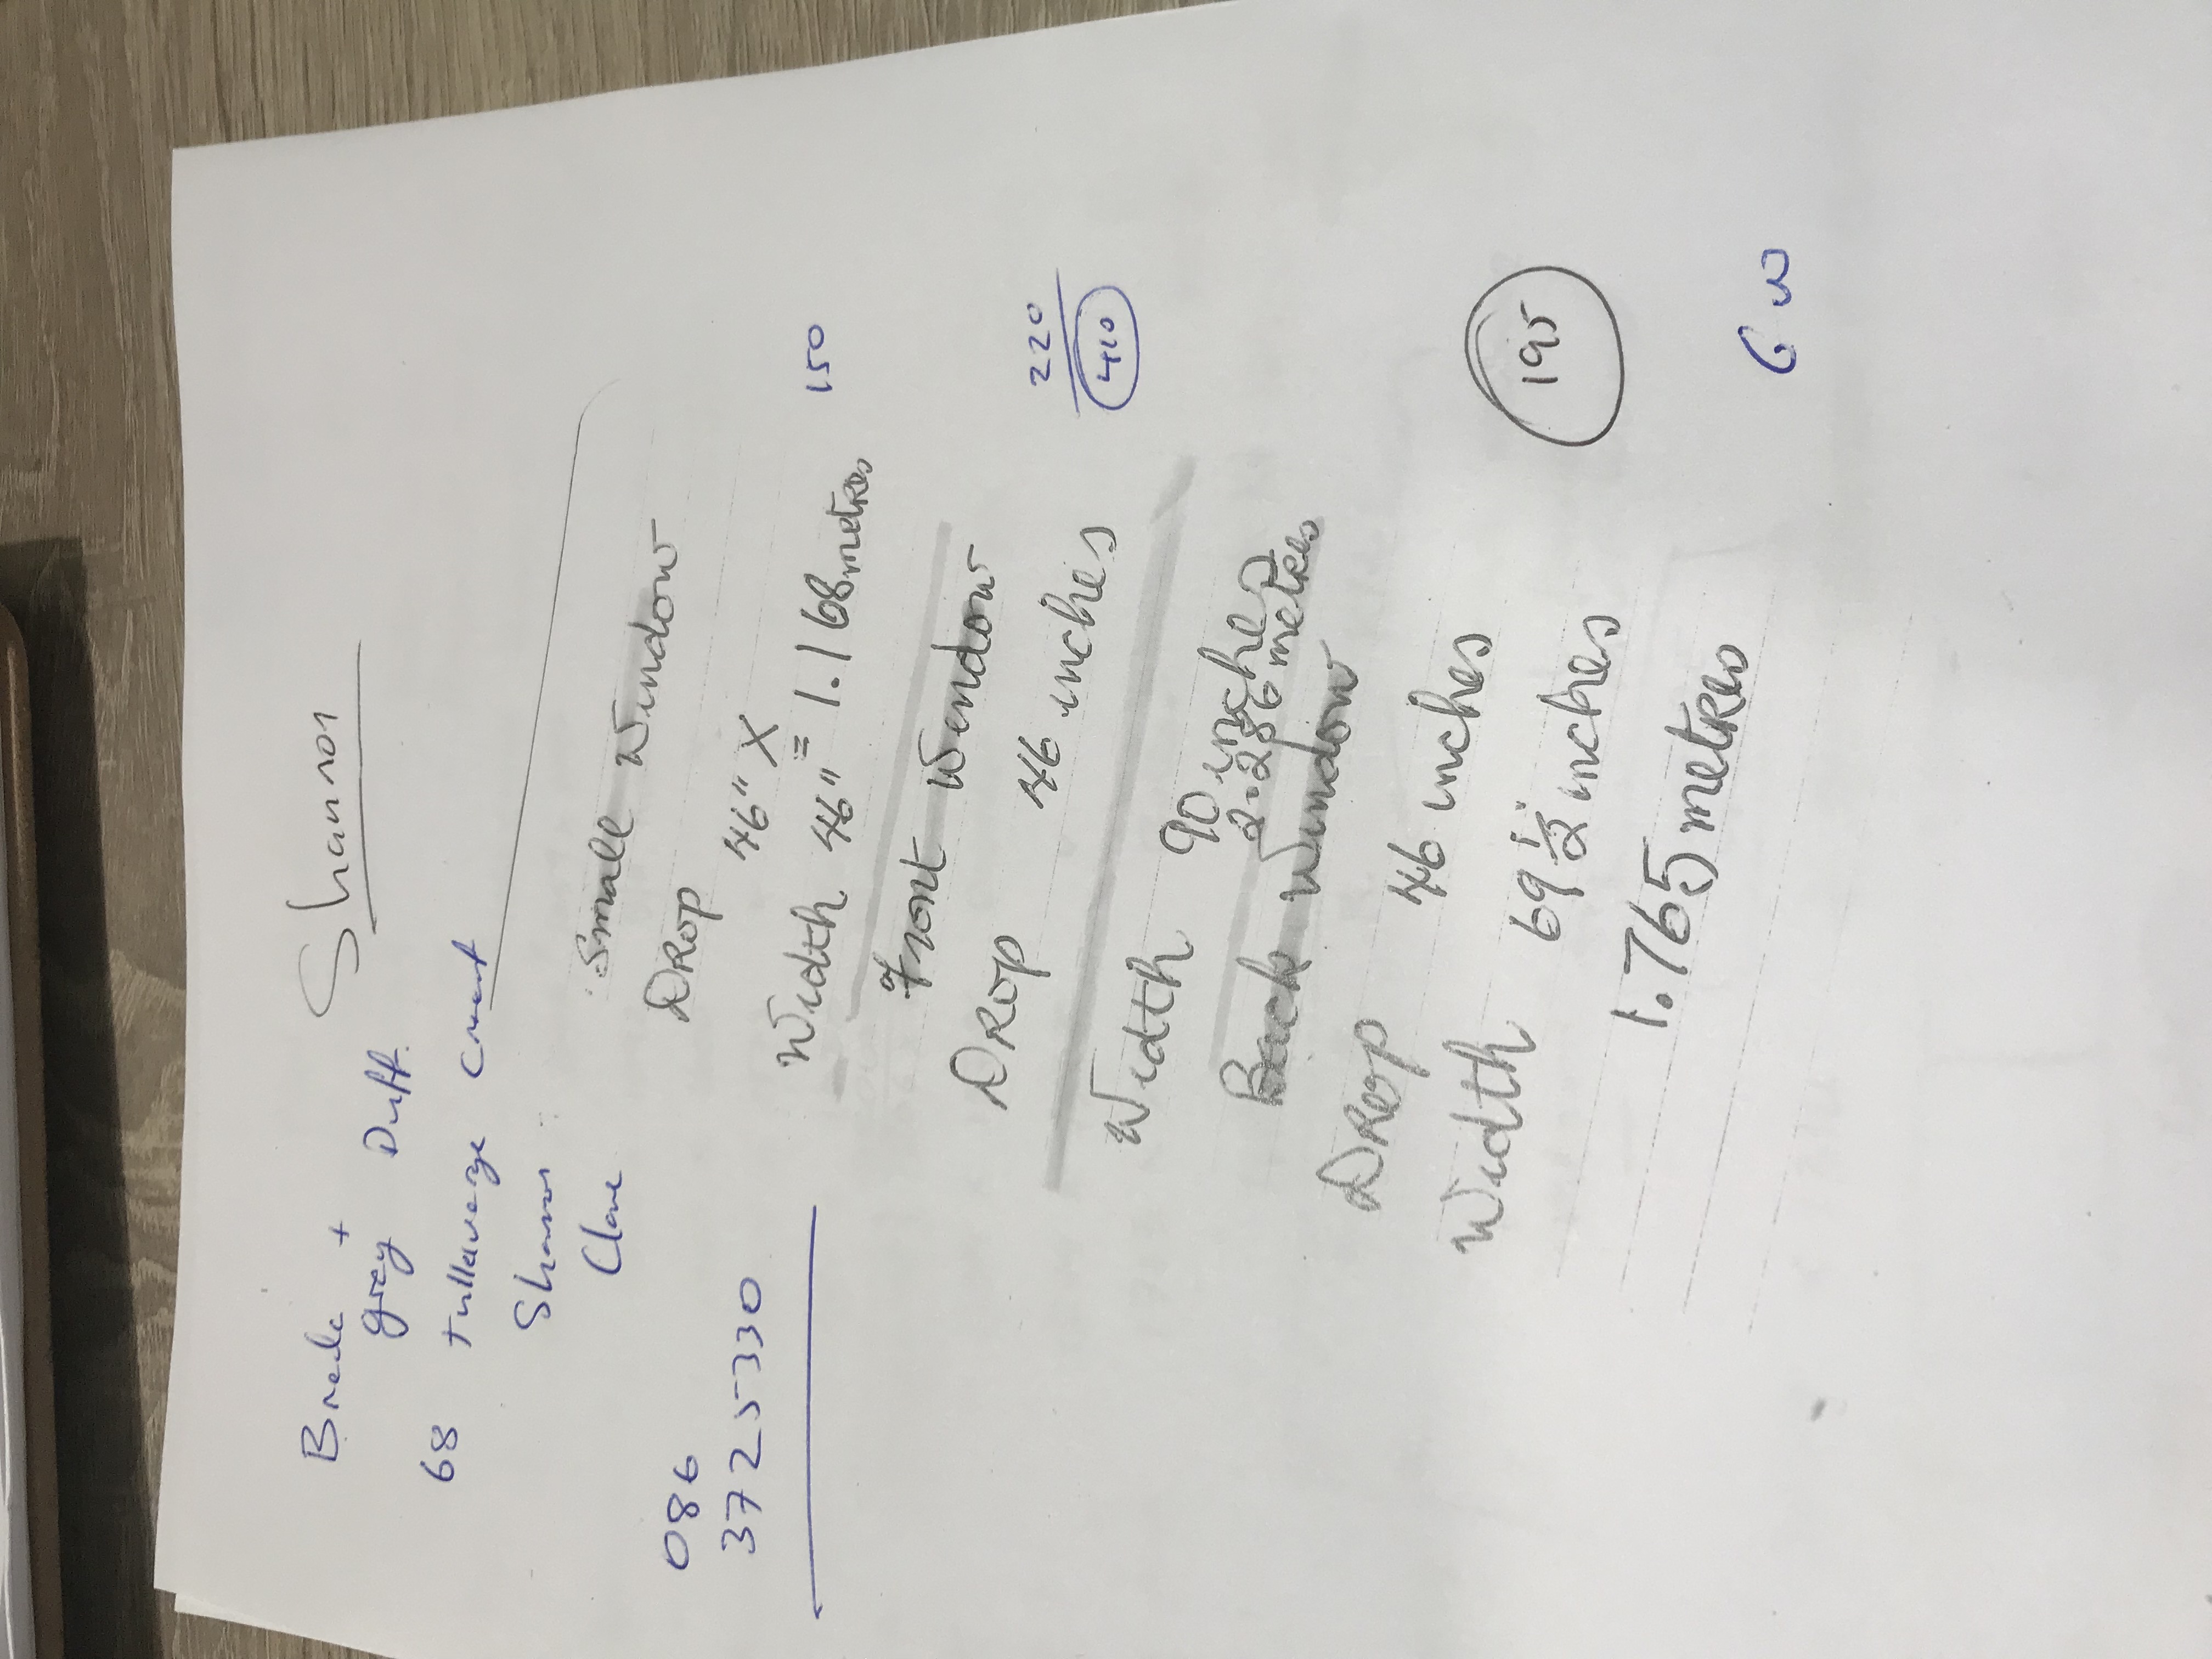 Shannon
Breda +
grey Duff.
68 Tullavarge Cresent
Shannon
Clare
086
3725330
Small Window
DROP 46" X
Width 46" = 1.168 metres
150
Front Window
DROP 46 inches
220
410
Width 90 inches
2.286 metres
Back Window
DROP 46 inches
Width 69 1/2 inches
195
1.765 metres